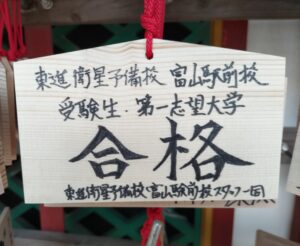 東進衛星予備校 富山駅前校
受験生・第一志望大学
合格
東進衛星予備校 富山駅前校スタッフ一同